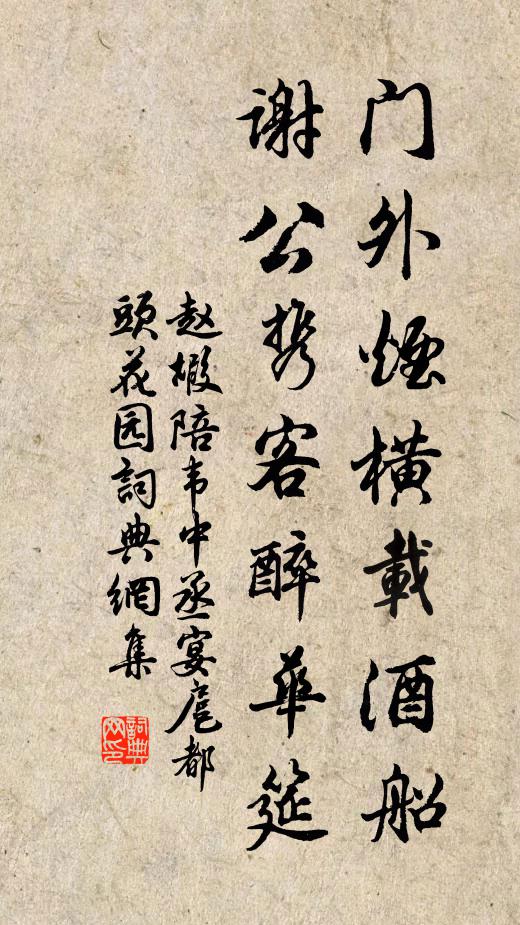 门外煙橫載酒船
谢公携客醉華筵
赵嘏陪韦中丞宴扈都
頭花园詞典網集
詞典
网印